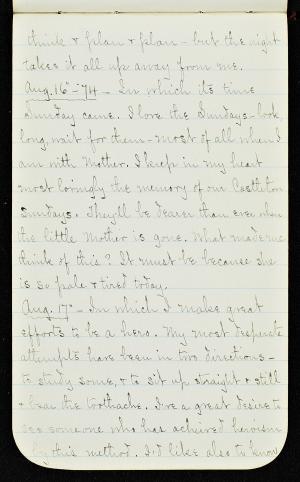 think & plan & plan – but the night
takes it all up away from me.
Aug. 16" – 74 – In which its time
Sunday came. I love the Sundays – look,
long, wait for them – most of all when I
am with Mother. I keep in my heart
most lovingly the memory of our Castleton
Sundays. They'll be dearer than ever when
the little Mother is gone. What made me
think of this? It must be because she
is so pale & tired today.
Aug. 17" – In which I make great
efforts to be a hero. My most desperate
attempts have been in two directions –
to study some, & to sit up straight & still
& bear the toothache. I've a great desire to
see someone who has achieved heroism
by this method. I'd like also to know